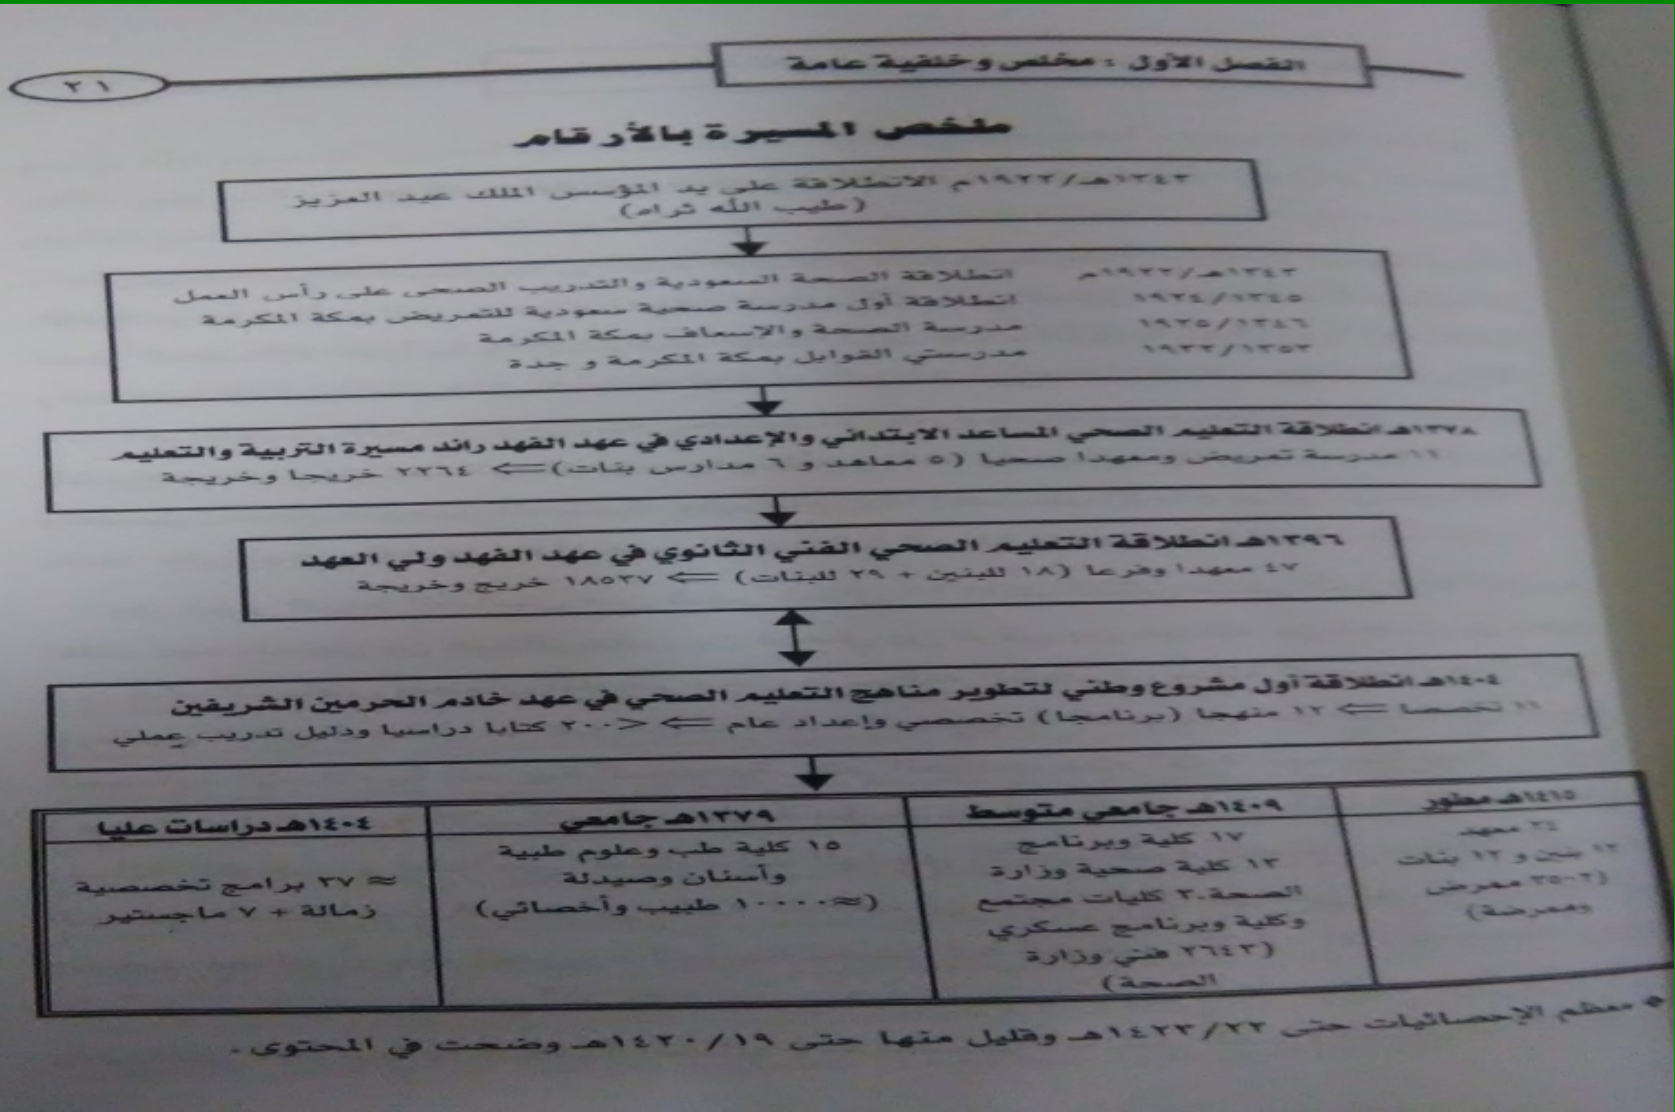 الفصل الأول : مخلص وخلفية عامة
٢١
ملخص المسيرة بالأرقام
١٣٤٣هـ/١٩٢٢م الانطلاقة على يد المؤسس الملك عبد العزيز
(طيب الله ثراه)
١٣٤٣هـ/١٩٢٢م انطلاقة الصحة السعودية والتدريب الصحي على رأس العمل
١٩٢٤/١٣٤٥ انطلاقة أول مدرسة صحية سعودية للتمريض بمكة المكرمة
١٩٢٥/١٣٤٦ مدرسة الصحة والاسعاف بمكة المكرمة
١٩٣٢/١٣٥٣ مدرستي القوابل بمكة المكرمة و جدة
١٣٧٨هـ انطلاقة التعليم الصحي المساعد الابتدائي والإعدادي في عهد الفهد رائد مسيرة التربية والتعليم
١١ مدرسة تمريض ومعهدا صحيا (٥ معاهد و ٦ مدارس بنات) ⇐ ٢٢٦٤ خريجا وخريجة
١٣٩٦هـ انطلاقة التعليم الصحي الفني الثانوي في عهد الفهد ولي العهد
٤٧ معهدا وفرعا (١٨ للبنين + ٢٩ للبنات) ⇐ ١٨٥٣٧ خريج وخريجة
١٤٠٤هـ انطلاقة أول مشروع وطني لتطوير مناهج التعليم الصحي في عهد خادم الحرمين الشريفين
١١ تخصصا ⇐ ١٢ منهجا (برنامجا) تخصصي وإعداد عام ⇐ <٢٠٠ كتابا دراسيا ودليل تدريب عملي
١٤١٥هـ مطور
٢٤ معهد
١٢ بنين و ١٢ بنات
(٣٥٠٢ ممرض
وممرضة)
١٤٠٩هـ جامعي متوسط
١٧ كلية وبرنامج
١٣ كلية صحية وزارة
الصحة.٣ كليات مجتمع
وكلية وبرنامج عسكري
(٢٦٤٣ فني وزارة
الصحة)
١٣٧٩هـ جامعي
١٥ كلية طب وعلوم طبية
وأسنان وصيدلة
(≈١٠٠٠٠ طبيب وأخصائي)
١٤٠٤هـ دراسات عليا
≈ ٣٧ برامج تخصصية
زمالة + ٧ ماجستير
• معظم الإحصائيات حتى ١٤٢٣/٢٢هـ وقليل منها حتى ١٤٢٠/١٩هـ وضحت في المحتوى.